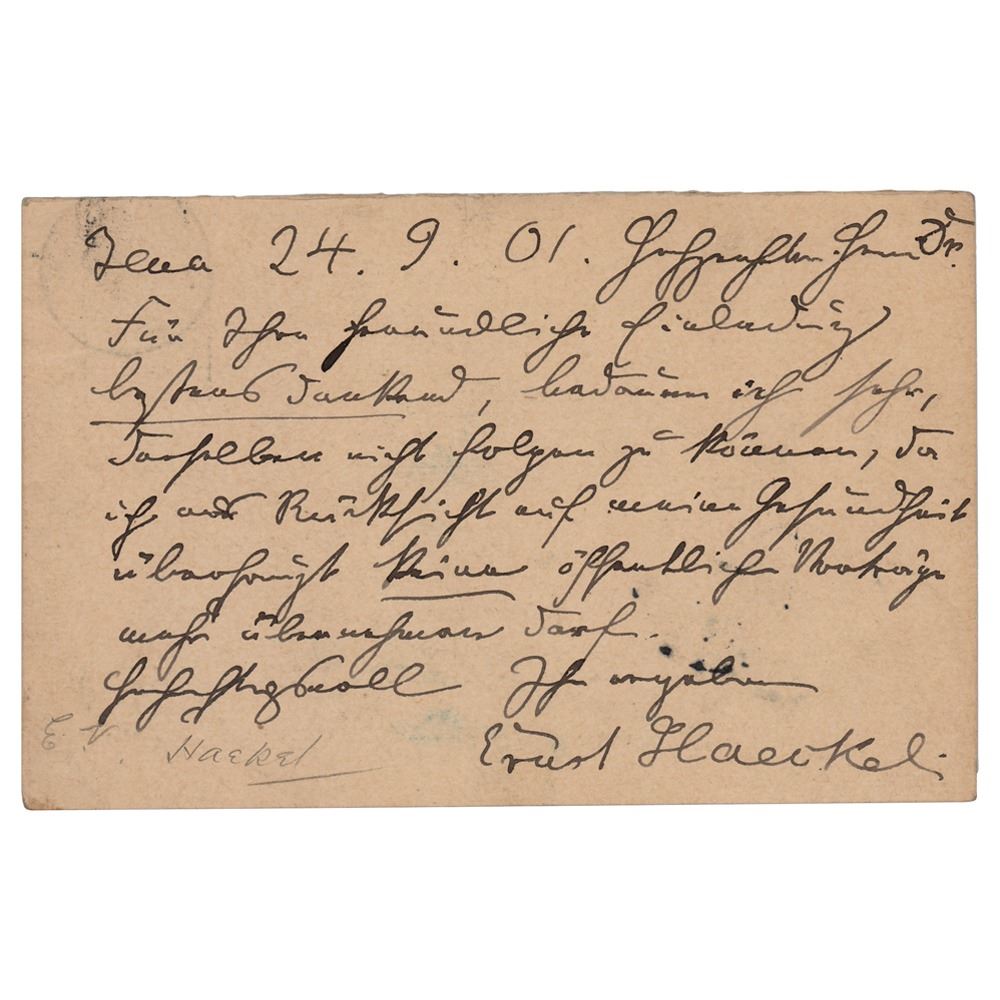 Jena 24. 9. 01. Hochgeehrter Herr Dr.
Für Ihre freundliche Einladung
bestens dankend, bedaure ich sehr,
derselben nicht folgen zu können, da
ich aus Rücksicht auf meine Gesundheit
überhaupt keine öffentlichen Vorträge
mehr übernehmen darf.
Hochachtungsvoll Ihr ergebener
Ernst Haeckel.
Haekel